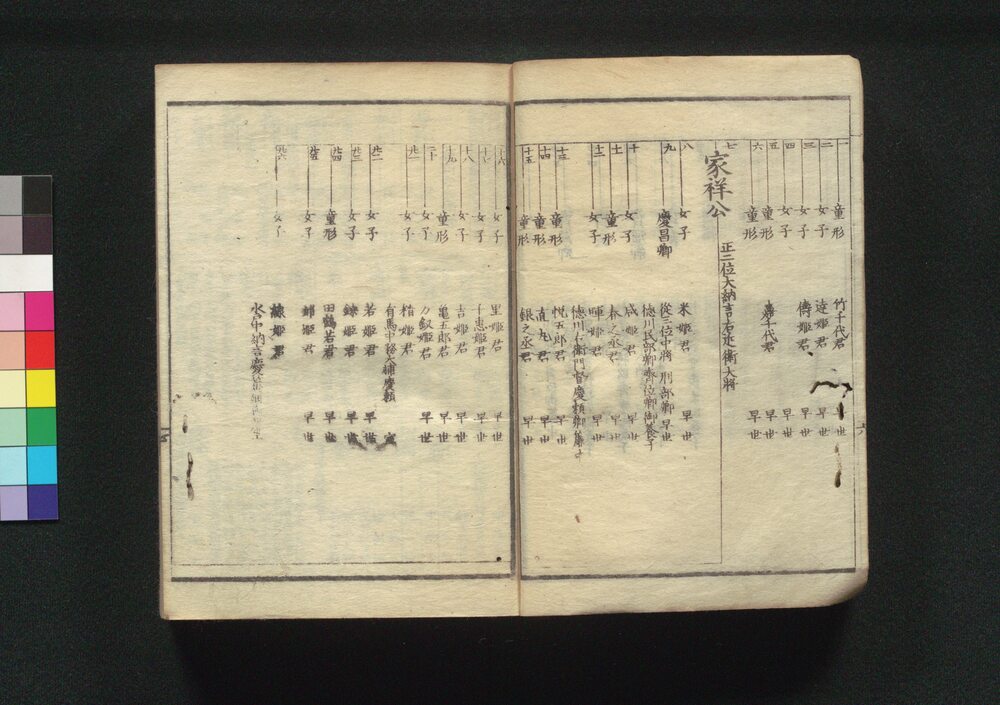 一 童形 竹千代君 早世
二 女子 達姫君 早世
三 女子 儔姫君 早世
四 女子 早世
五 童形 嘉千代君 早世
六 童形 早世
七 家祥公 正二位大納言右近衛大将
八 女子 米姫君 早世
九 慶昌卿 従三位中将 刑部卿 早世
徳川民部卿斉位卿御養子
十 女子 咸姫君 早世
十一 童形 春之丞君 早世
十二 女子 暉姫君 早世
徳川右衛門督慶頼卿簾中
十三 童形 悦五郎君 早世
十四 童形 直丸君 早世
十五 童形 銀之丞君 早世
十六 女子 里姫君 早世
十七 女子 千恵姫君 早世
十八 女子 吉姫君 早世
十九 童形 亀五郎君 早世
二十 女子 万釵姫君 早世
廿一 女子 精姫君
有馬中務大輔慶頼 室
廿二 女子 若姫君 早世
廿三 童形 鐐姫君 早世
廿四 童形 田鶴若君 早世
廿五 女子 鄰姫君 早世
廿六 女子 線姫君
水戸中納言慶篤卿